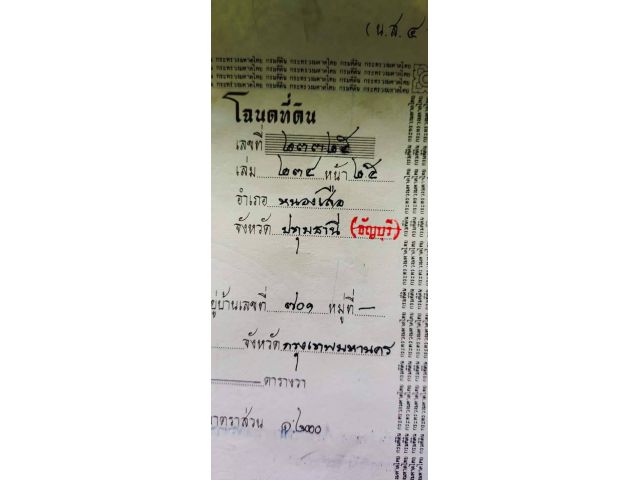 (น.ส. ๔
กระทรวงมหาดไทย กรมที่ดิน กระทรวงมหาดไทย กรมที่ดิน กระทรวงมหาดไทย
โฉนดที่ดิน
เลขที่ ๒๓๓๒๕
เล่ม ๒๓๔ หน้า ๒๕
อำเภอ หนองเสือ
จังหวัด ปทุมธานี (ธัญบุรี)
ยู่บ้านเลขที่ ๗๐๑ หมู่ที่ —
จังหวัด กรุงเทพมหานคร
ตารางวา
าตราส่วน ๑:๒๐๐๐